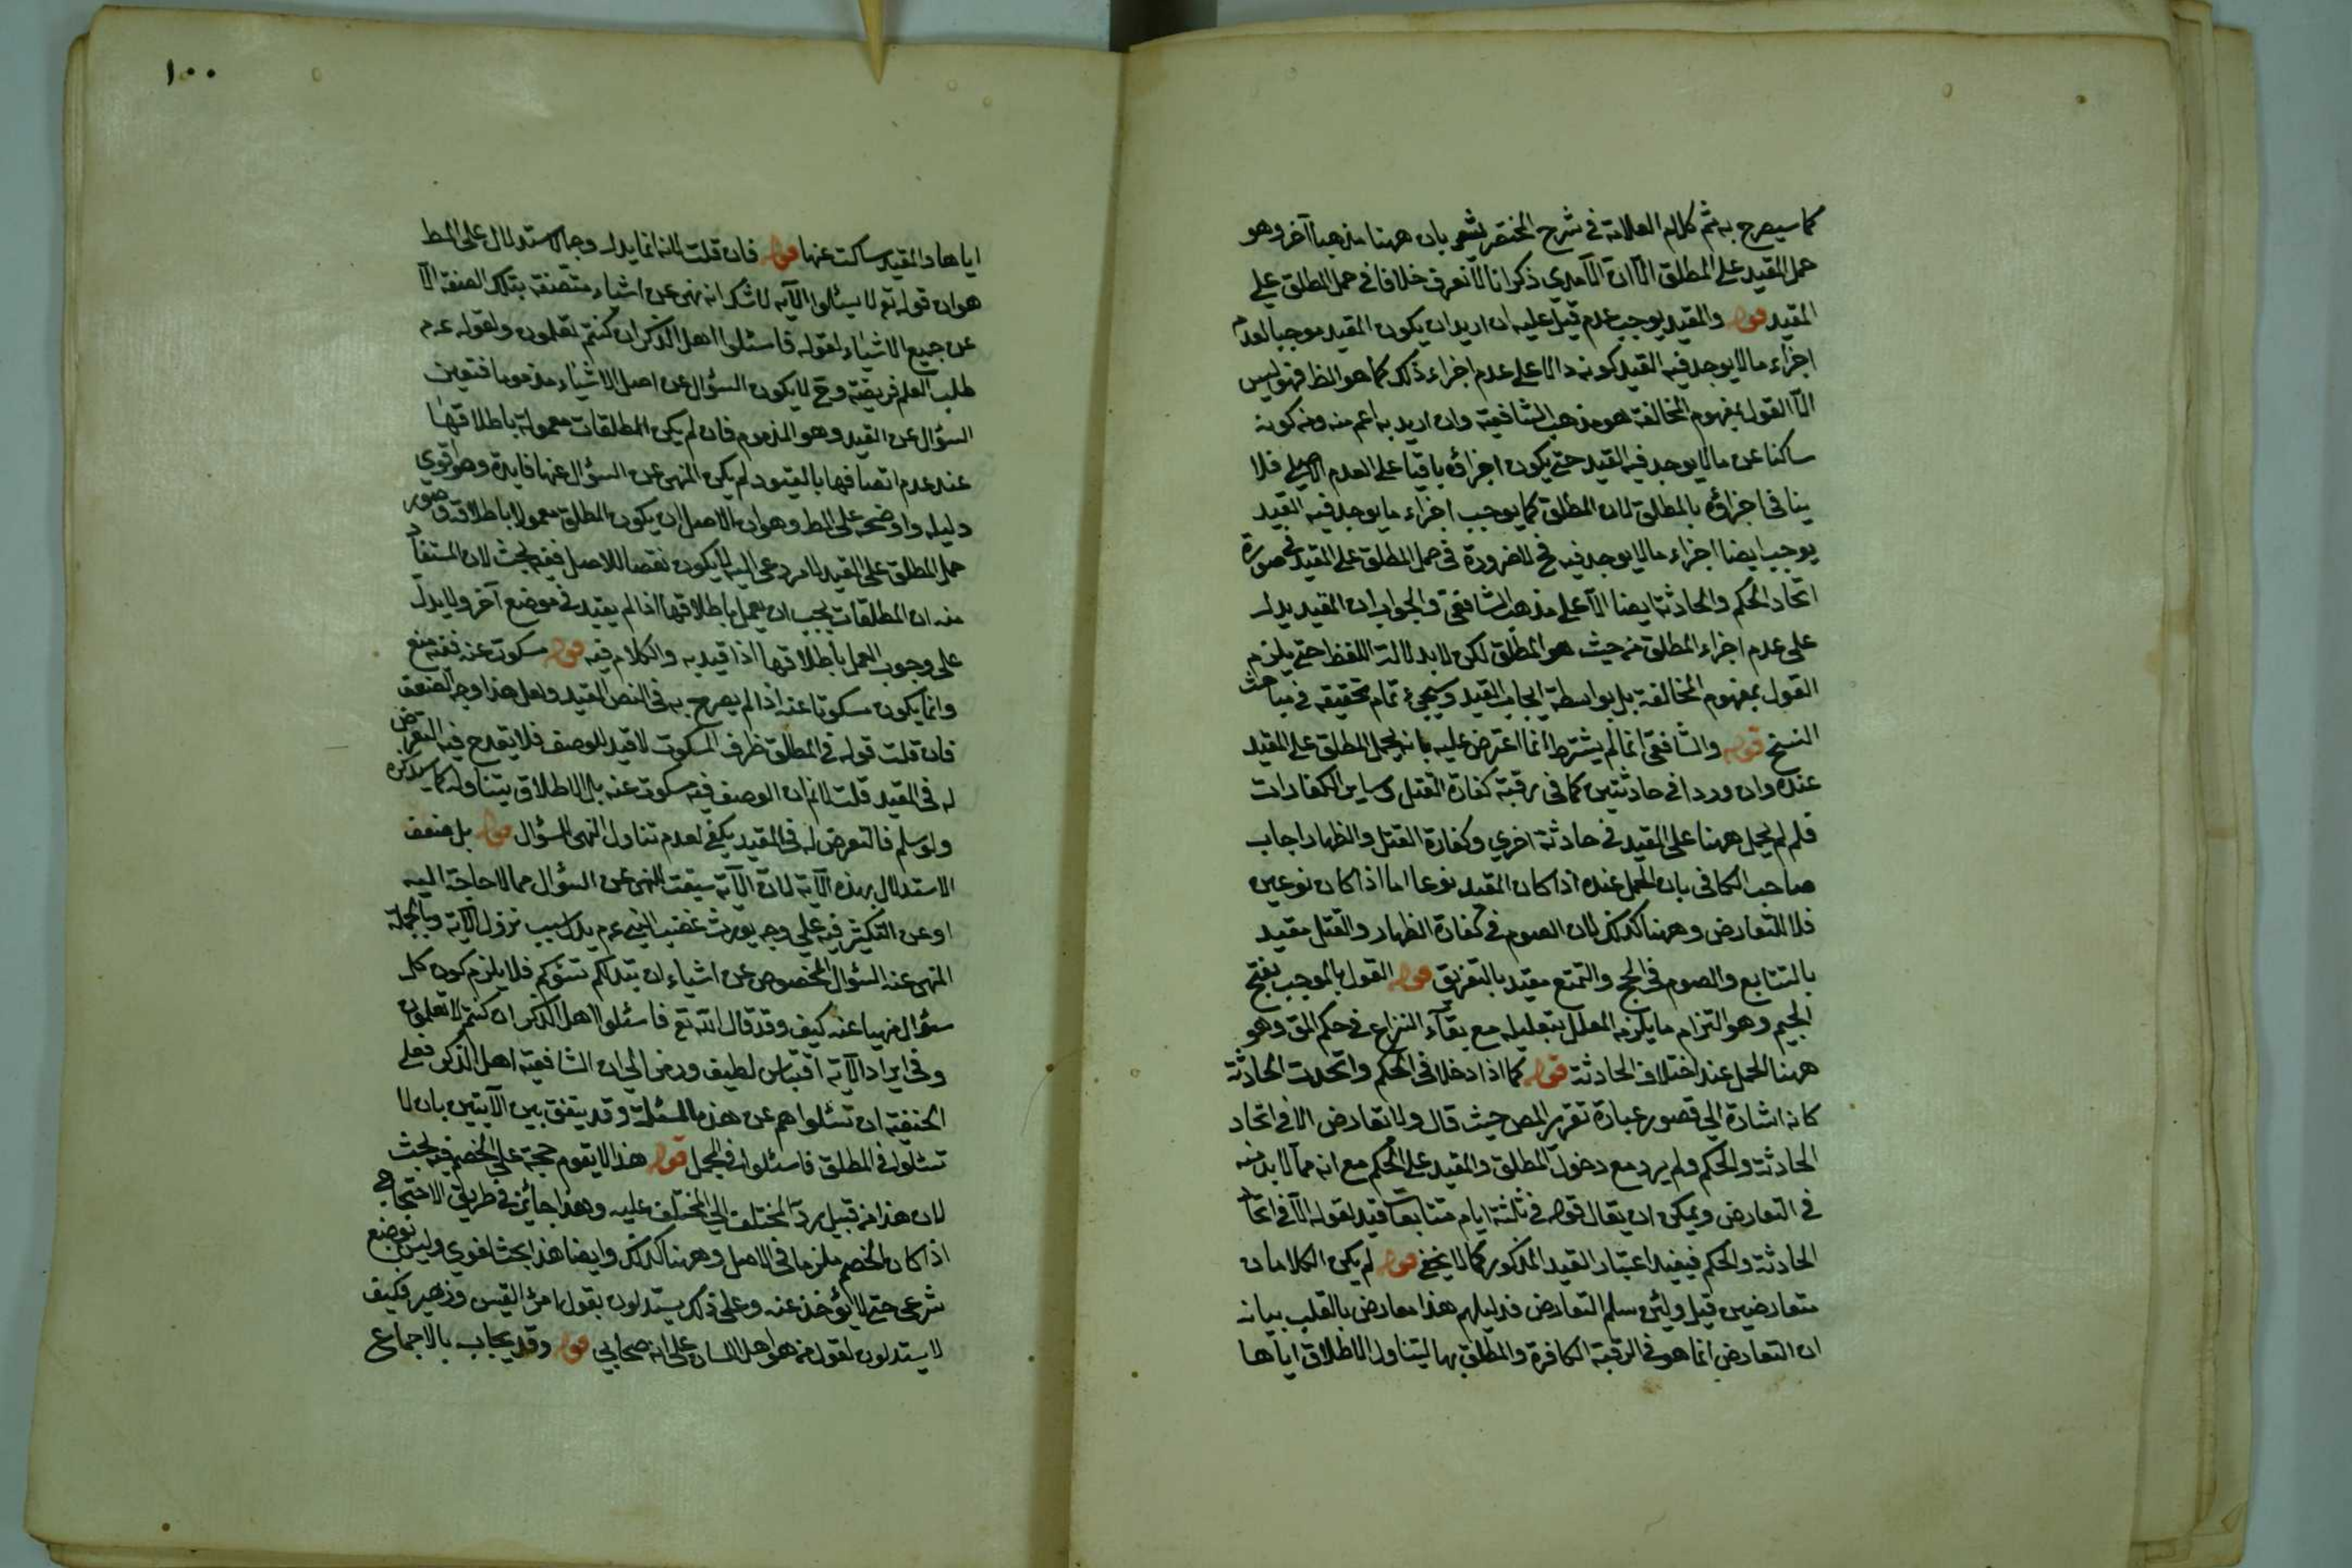 كما سيصرح به ثم كلام العلامة في شرح المختصر يشعر بان ههنا مذهبا آخر وهو
حمل المقيد على المطلق الا ان الآمدي ذكر انا لا نعرف خلافا في حمل المطلق على
المقيد قوله والمقيد يوجب عدم قيل عليه ان اريد ان يكون المقيد موجبا لعدم
اجزاء ما لا يوجد فيه القيد كونه دالا على عدم اجزاء ذلك كما هو الظ فهو ليس
الا القول بمفهوم المخالفة هو مذهب الشافعية وان اريد به اعم منه ومن كونه
ساكتا عن ما لا يوجد فيه القيد حتى يكون اجزاؤه باقيا على العدم الاصلي فلا
ينافي اجزاؤه بالمطلق لان المطلق كما يوجب اجزاء ما يوجد فيه القيد
يوجب ايضا اجزاء ما لا يوجد فيه فح لا ضرورة في حمل المطلق على المقيد في صورة
اتحاد الحكم والحادثة ايضا الا على مذهب الشافعي والجواب ان المقيد يدل
على عدم اجزاء المطلق من حيث هو المطلق لكن لا بدلالة اللفظ حتى يلزم
القول بمفهوم المخالفة بل بواسطة ايجاب القيد وسيجيء تمام تحقيقه في مباحث
النسخ قوله والشافعي انما لم يشترط انما اعترض عليه بانه يحمل المطلق على المقيد
عنده وان وردا في حادثتين كما في رقبة كفارة القتل وساير الكفارات
فلم لم يحمل ههنا على المقيد في حادثة اخري وكفارة القتل والظهار اجاب
صاحب الكافي بان الحمل عنده اذا كان المقيد نوعا اما اذا كان نوعين
فلا للتعارض وههنا كذلك لان الصوم في كفارة الظهار والقتل مقيد
بالتتابع والصوم في الحج والتمتع مقيد بالتفريق قوله القول بالموجب بفتح
الجيم وهو التزام ما يلزمه المعلل بتعليله مع بقآء النزاع في حكم المق وهو
ههنا الحمل عند اختلاف الحادثة قوله كما اذا دخلا في الحكم واتحدت الحادثة
كانه اشارة الي قصور عبارة تقرير المص حيث قال ولا تعارض الا في اتحاد
الحادثة والحكم ولم يرد مع دخول المطلق والمقيد على الحكم مع انه مما لا بد منه
في التعارض ويمكن ان يقال قوله في ثلثة ايام متتابعات قيد لقوله الا في اتحاد
الحادثة والحكم فيفيد اعتبار القيد المذكور كما لا يخفي قوله لم يكن الكلامان
متعارضين قيل ولئن سلم التعارض فدليلهم هذا معارض بالقلب بيانه
ان التعارض انما هو في الرقبة الكافرة والمطلق بها ليتناول الاطلاق اياها
١٠٠
اياها والمقيد ساكت عنها قوله فان قلت انه انما يدل وجه الاستدلال على المط
هو ان قوله تع لا تسئلوا الآيه لا شك انه نهي عن اشياء متصفة بتلك الصفة الا
عن جميع الاشياء لقوله فاسئلوا اهل الذكر ان كنتم تعلمون ولقوله عم
طلب العلم فريضة وح لا يكون السؤال عن اصل الاشياء مذموما فتعين
السؤال عن القيد وهو المذموم فان لم يكن المطلقات معمولة باطلاقها
عند عدم اتصافها بالقيود لم يكن للنهي عن السؤال عنها فايدة وهو اقوي
دليله واوضحه على المط وهو ان الاصل ان يكون المطلق معمولا باطلاقه وصور
حمل المطلق على المقيد لامر دعى اليه لا يكون نقضا للاصل ففيه بحث لان المستفاد
منه ان المطلقات يجب ان يعمل باطلاقها اذا لم يقيد في موضع آخر ولا يدل
على وجوب العمل باطلاقها اذا قيد به والكلام فيه قوله مسكوت عنه ففيه منع
وانما يكون مسكوتا عنه اذا لم يصرح به في النص المقيد ولعل هذا وجه الضعف
فان قلت قوله في المطلق ظرف المسكوت لا قيد للوصف فلا يقدح فيه التعرض
له في المقيد قلت لا نم ان الوصف فيه مسكوت عنه بل الاطلاق يتناوله كما سيذكره
ولو سلم فالتعرض له في المقيد يكفي لعدم تناول النهي السؤال قوله بل ضعف
الاستدلال بهذه الآية لان الآية سيقت للنهي عن السؤال مما لا حاجة اليه
او عن التكثير فيه علي وجه يورث غضب النبي عم بدل سبب نزول الآية وبالجملة
المنهي عنه السؤال المخصوص عن اشياء ان تبد لكم تسؤكم فلا يلزم كون كل
سؤال منهيا عنه كيف وقد قال الله تع فاسئلوا اهل الذكر ان كنتم لا تعلمون
وفي ايراد الآية اقتباس لطيف ورمز الي ان الشافعية اهل الذكر فعلى
الحنفية ان تسئلوا هم عن هذه المسئلة وقد يتفق بين الآيتين بان لا
تسئلوا في المطلق فاسئلوا في المجمل قوله هذا لا يقوم حجة على الخصم فيه بحث
لان هذا من قبيل رد المختلف الي المختلف عليه وهذا جائز في طريق الاحتجاج
اذا كان الخصم ملزما في الاصل وههنا كذلك وايضا هذا بحث لغوي وليس بوضع
شرعي حتى لا يؤخذ عنه وعلى ذلك يستدلون بقول امرؤ القيس وزهير فكيف
لا يستدلون لقول من هو اهل اللسان على انه صحابي قوله وقد يجاب بالاجماع